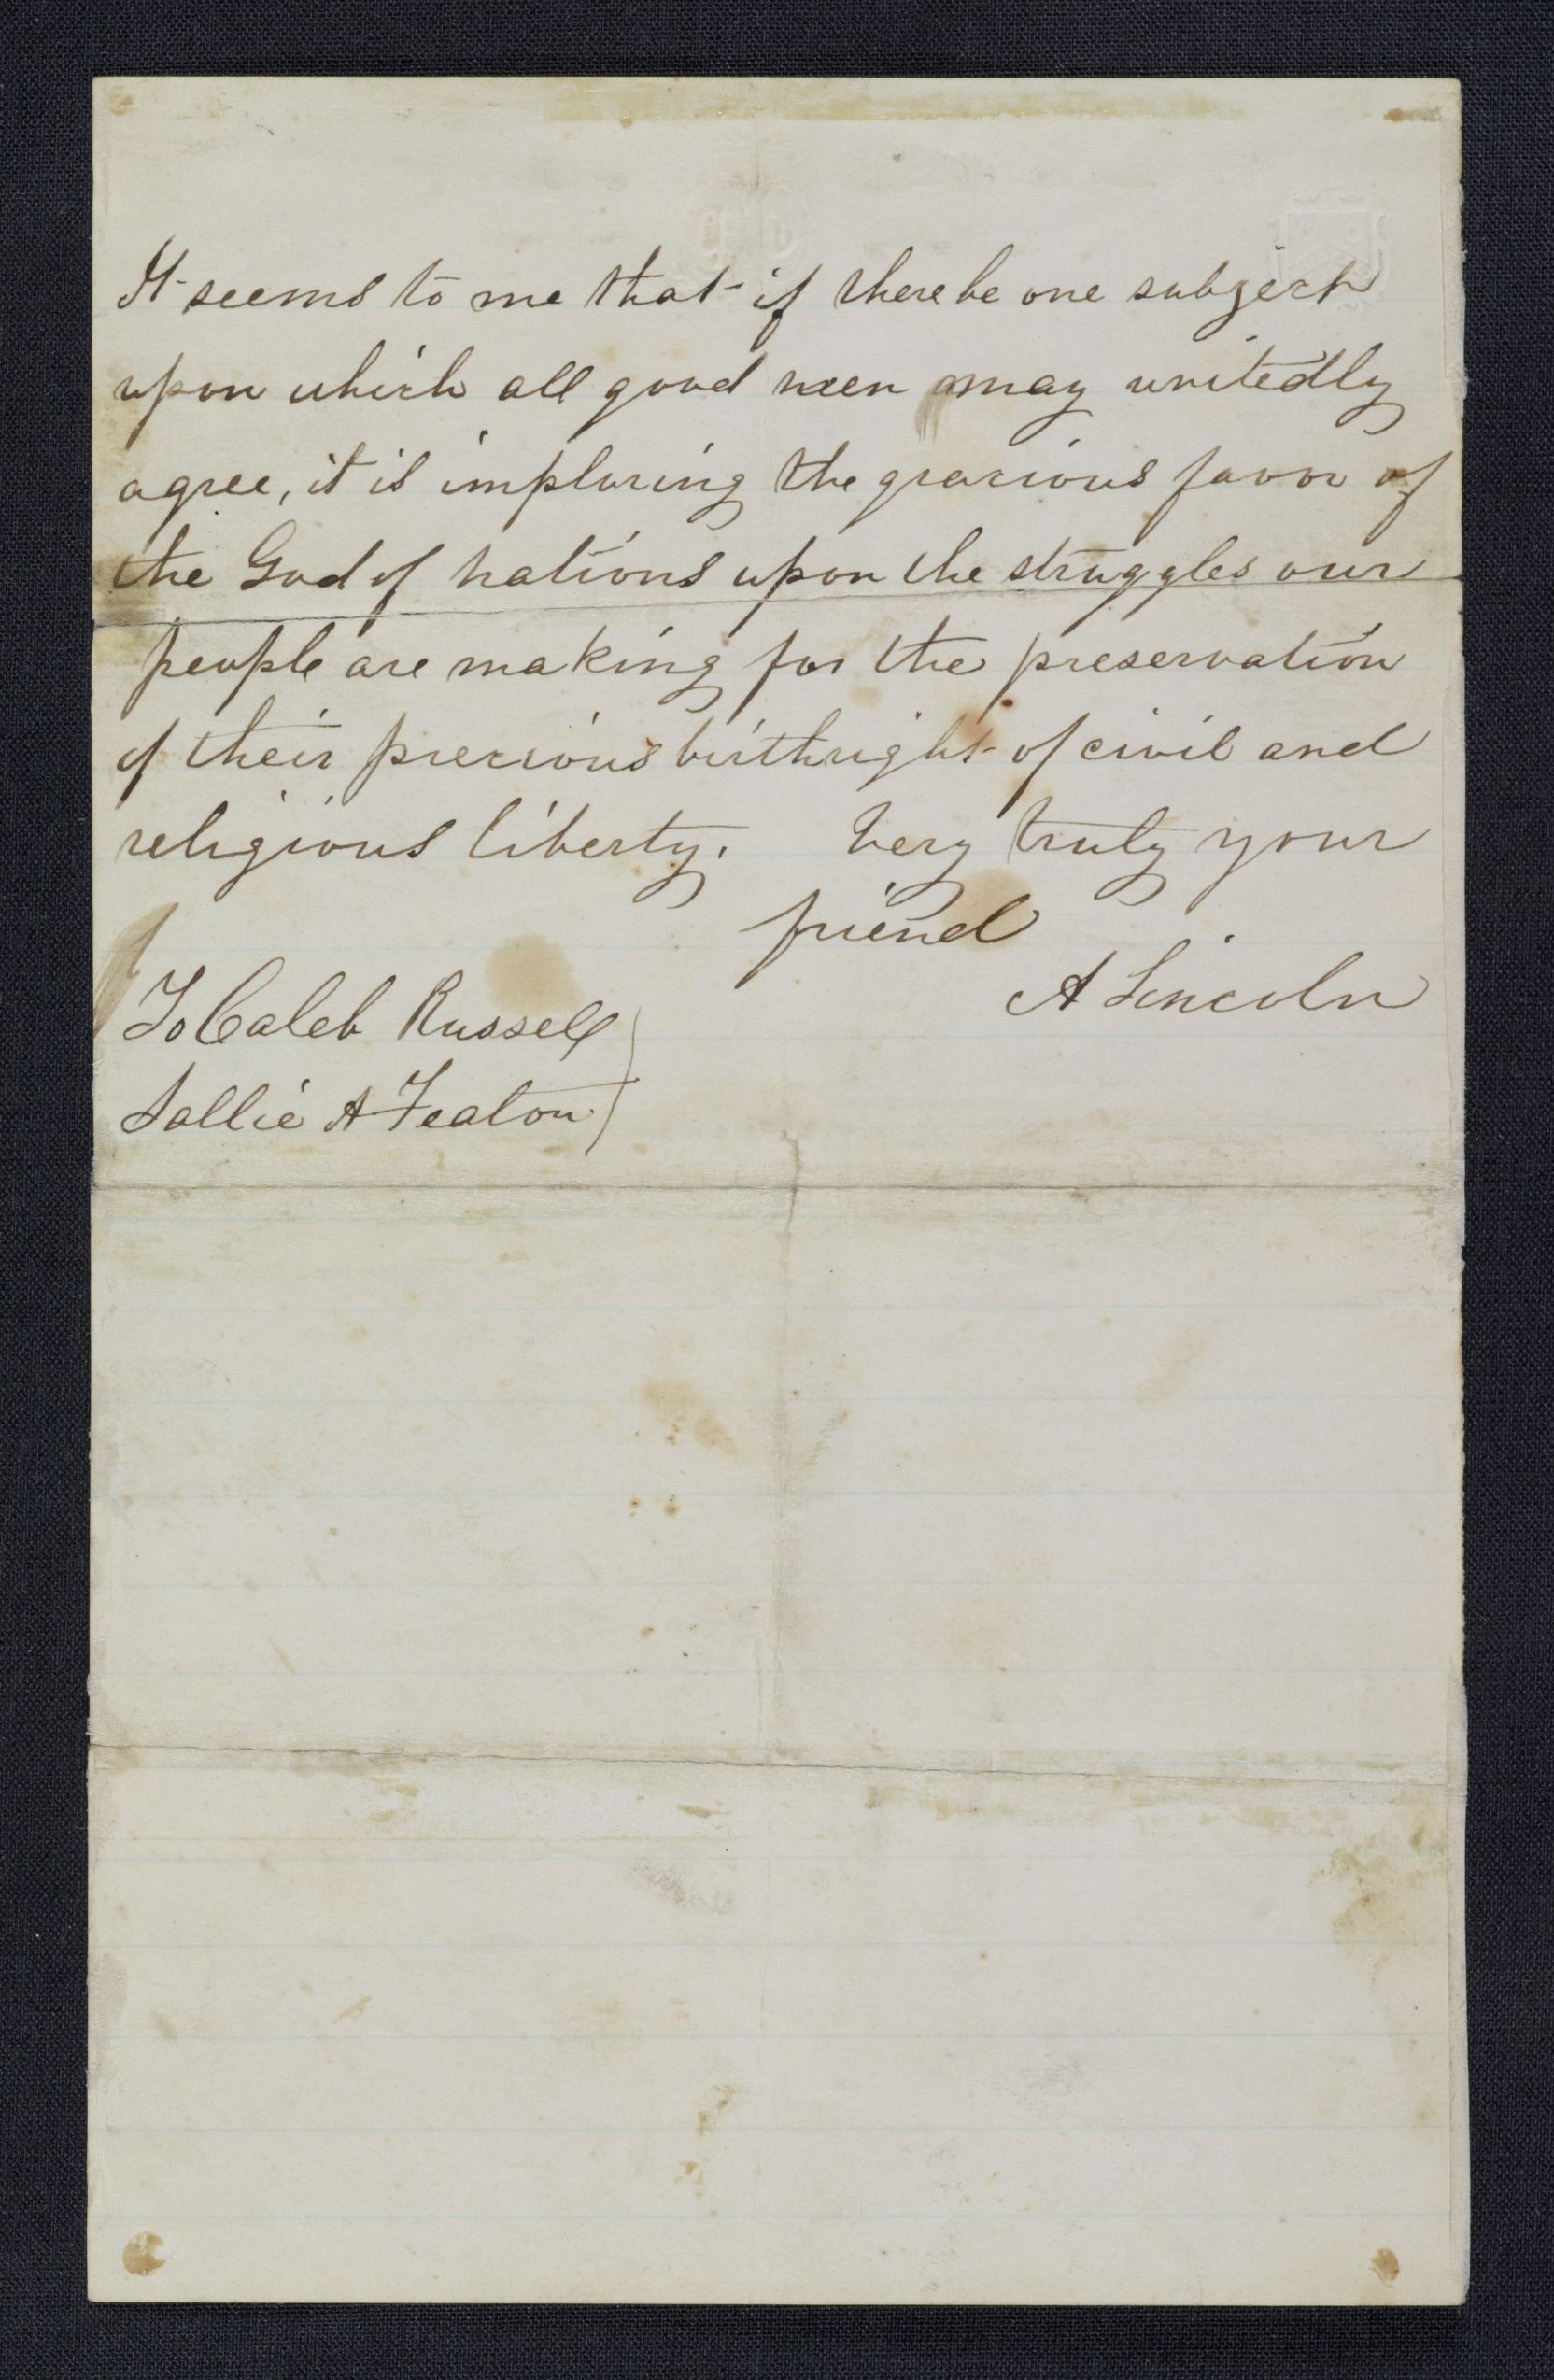 It seems to me that if there be one subject
upon which all good men may unitedly
agree, it is imploring the gracious favor of
the God of nations upon the struggles our
people are making for the preservation
of their precious birthright of civil and
religious liberty. Very truly your
friend
A Lincoln
To Caleb Russell
Sallie A Featon